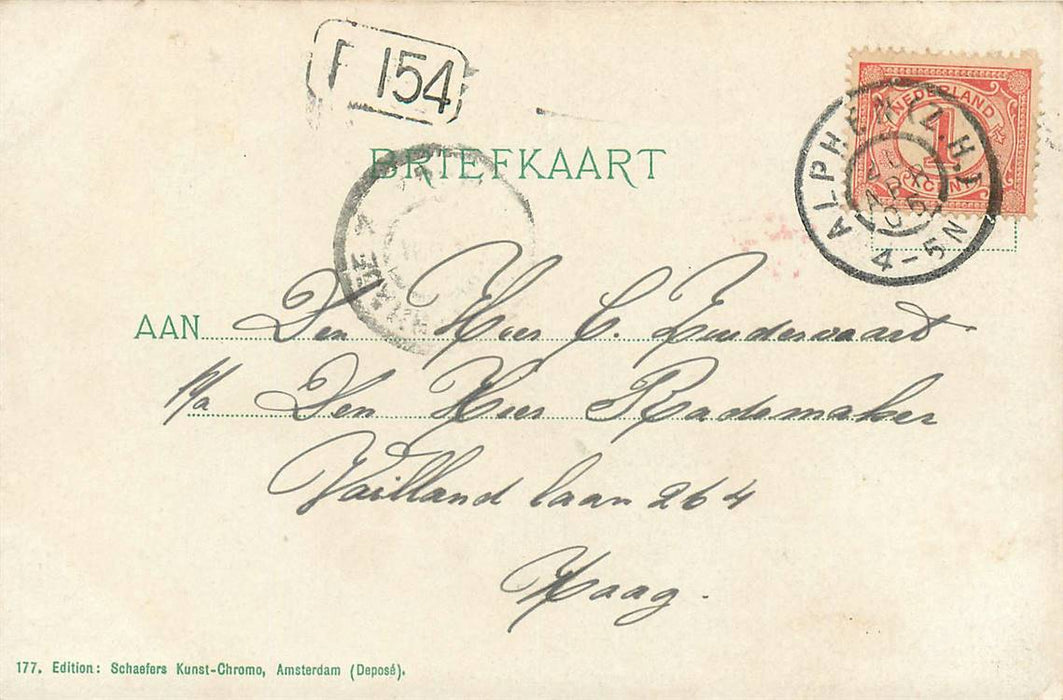 F 154
BRIEFKAART
NEDERLAND
1
CENT
ALPHEN (Z.H.)
APR
05
4-5N
AAN Den Heer C. Zuidervaart
p/a Den Heer Rademaker
Vailland laan 264
Haag.
177. Edition: Schaefers Kunst-Chromo, Amsterdam (Deposé).